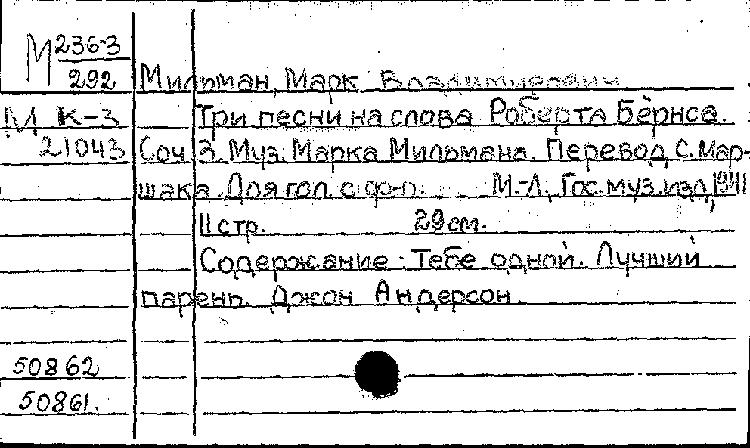 М 236-3
292 Мильман, Марк Владимирович
М К-3 Три песни на слова Роберта Бёрнса.
21043 Соч. 3. Муз. Марка Мильмана. Перевод С. Мар-
шака. Для гол. с ф-п. М.-Л., Гос. муз. изд., 1941
11 стр. 29 см.
Содержание: Тебе одной. Лучший
парень. Джон Андерсон.
50862
50861.